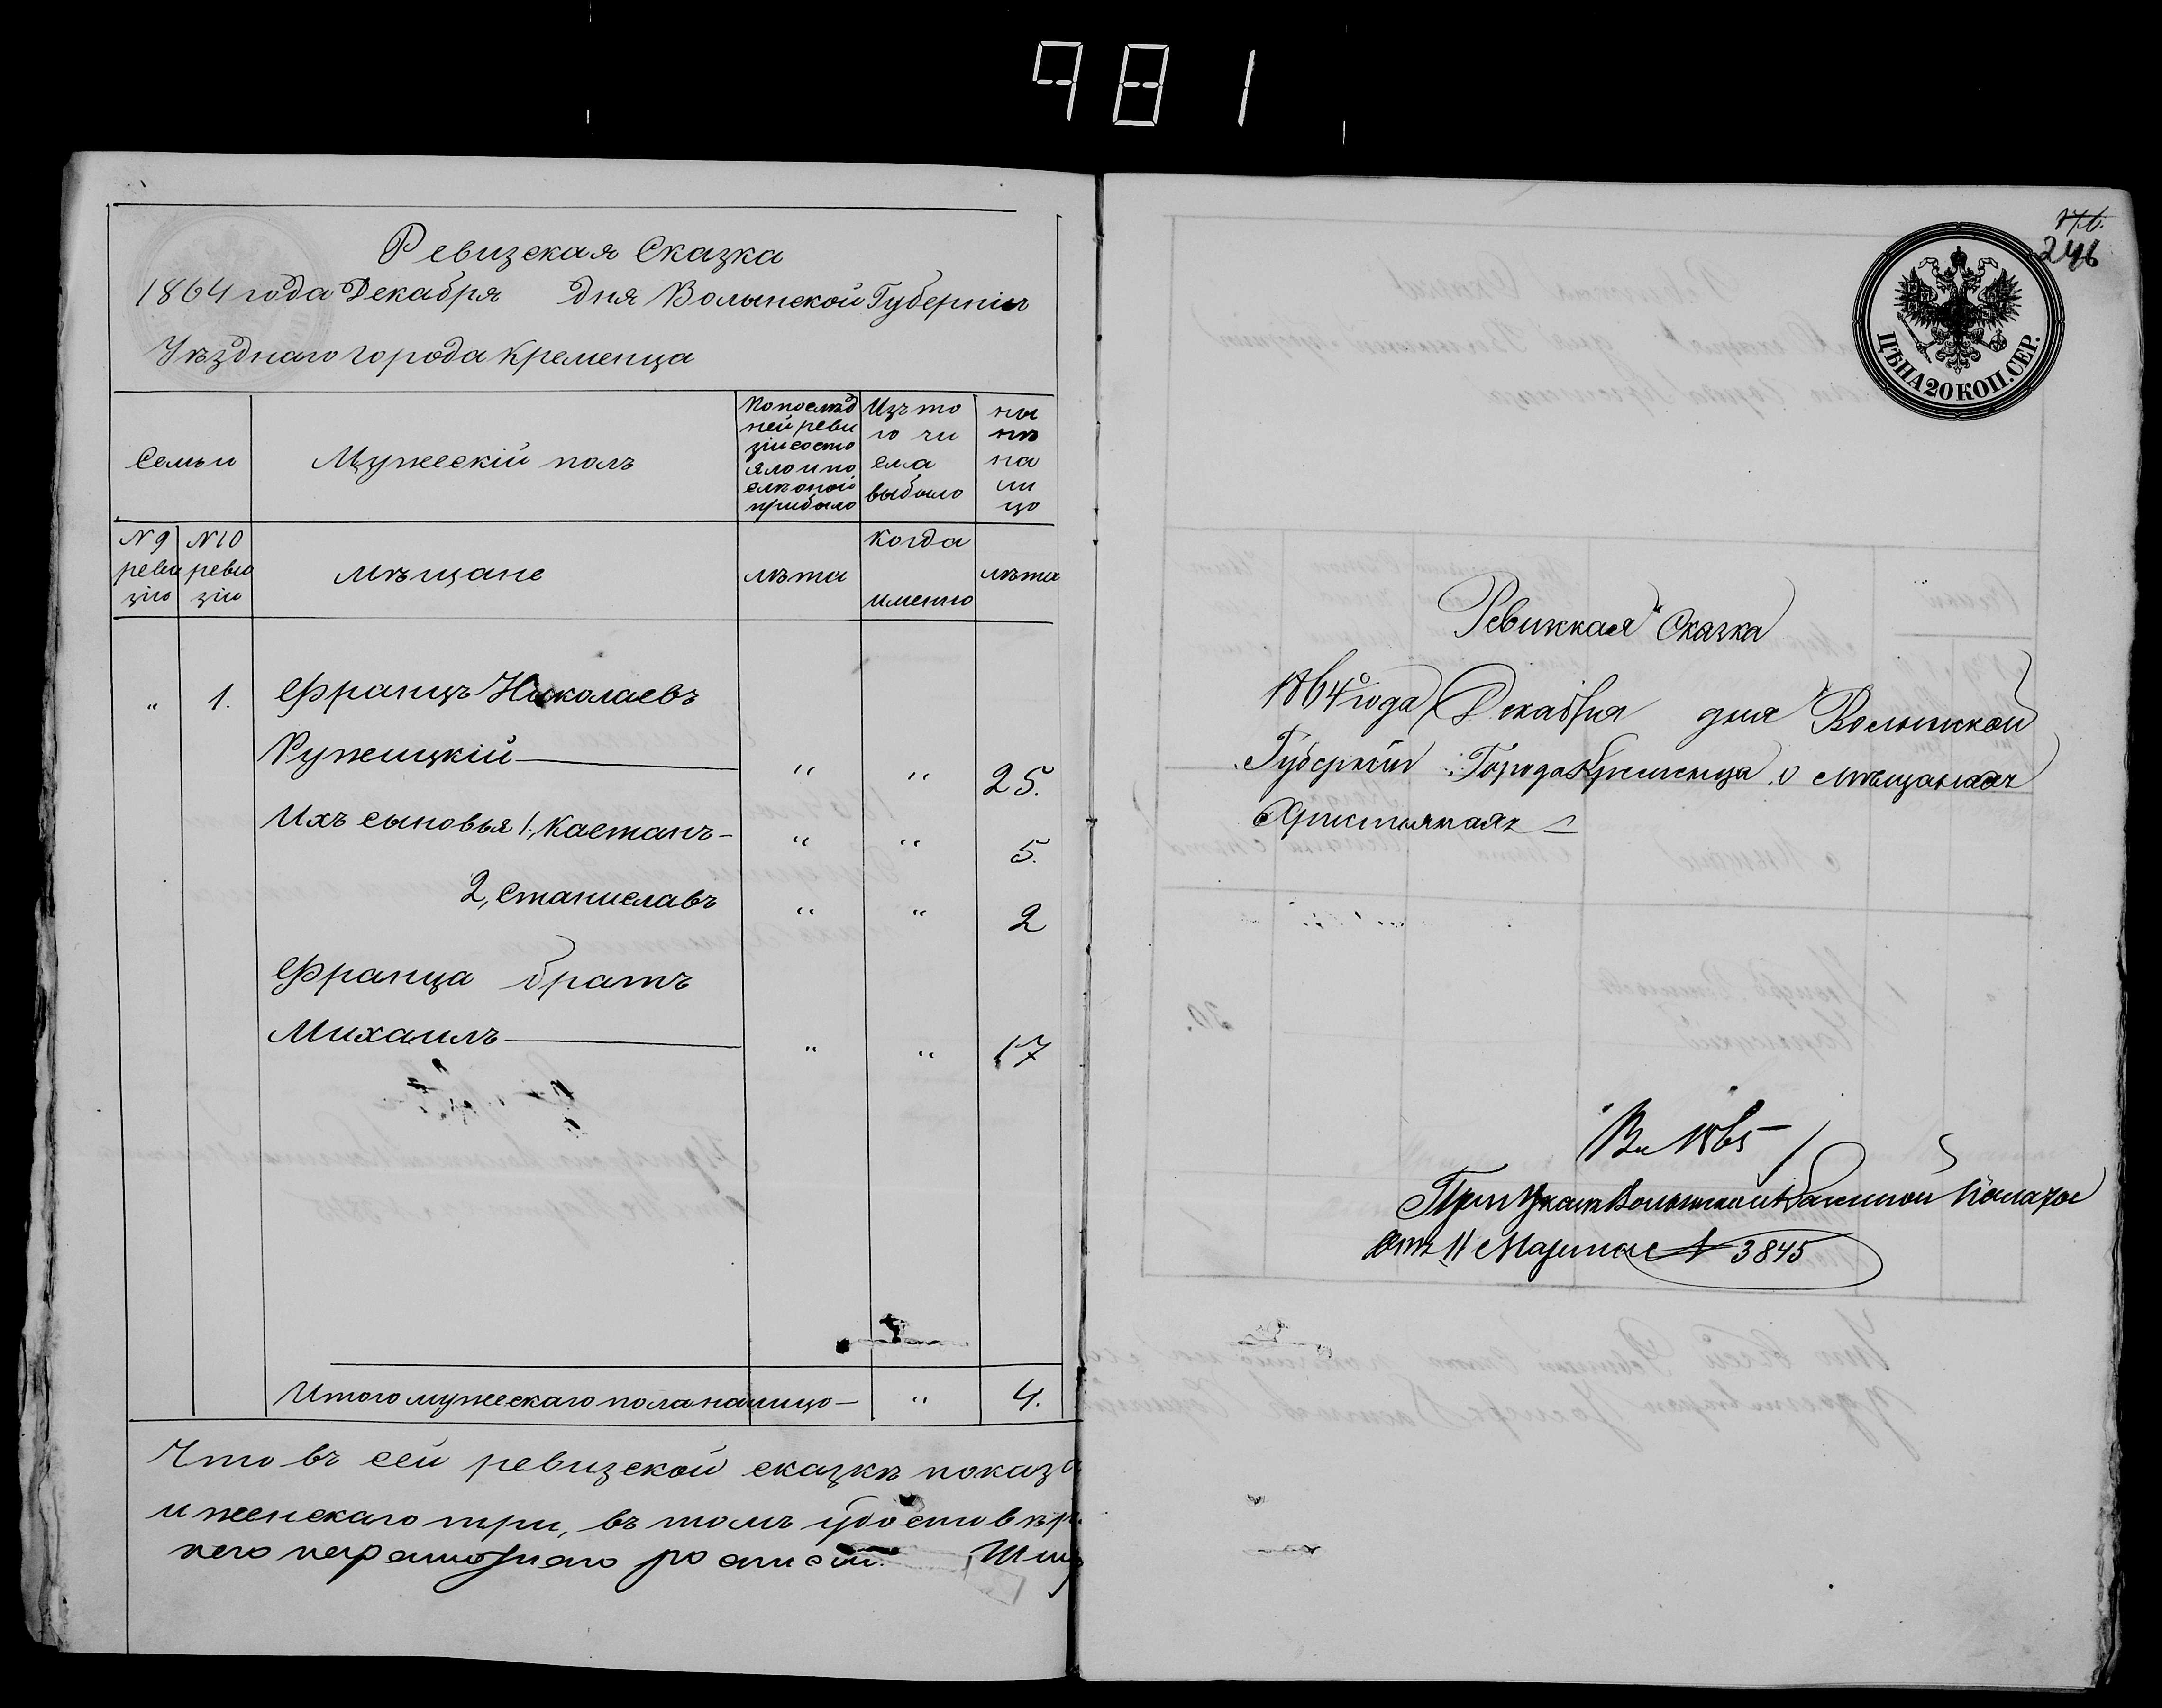 981
Ревизская Сказка
1864 года Декабря дня Волынской Губернiи
Уѣзднаго города Кременца
Семьи
Мужескiй полъ
По послѣд
ней реви
зiи состо
яло и по
слѣ оной
прибыло
Изъ то
го чи
сла
выбыло
ны
нѣ
на
ли
цо
N 9
реви
зiи
N 10
реви
зiи
Мѣщане
лѣта
Когда
именно
лѣта
" 1. Францъ Николаевъ
Ружицкiй " " 25.
Ихъ сыновья 1, Каетанъ " " 5.
2, Станиславъ " " 2
Франца братъ
Михаилъ " " 17
Итого мужескаго пола налицо " 4.
Что въ сей ревизской сказкѣ показа
и женскаго три, въ томъ удостовѣр
него неграмотнаго
176.
246
ЦѢНА 20 КОП. СЕР.
Ревизская Сказка
1864 года Декабря дня Волынской
Губернiи Города Кременца о мѣщанахъ
Христiянахъ
1865
При Указѣ Волынской Казенной Палаты
отъ 11 Марта N 3845